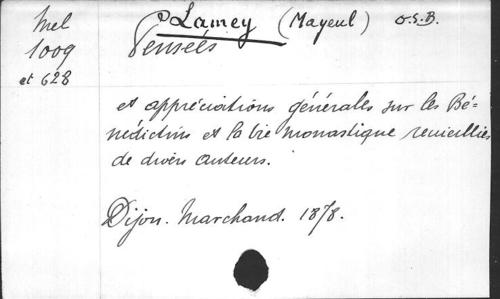 Mel
1009
et 628
P Lamey (Mayeul) O.S.B.
Pensées
et appréciations générales sur les Bé=
nédictins et la vie monastique recueillies
de divers auteurs.
Dijon. Marchand. 1878.